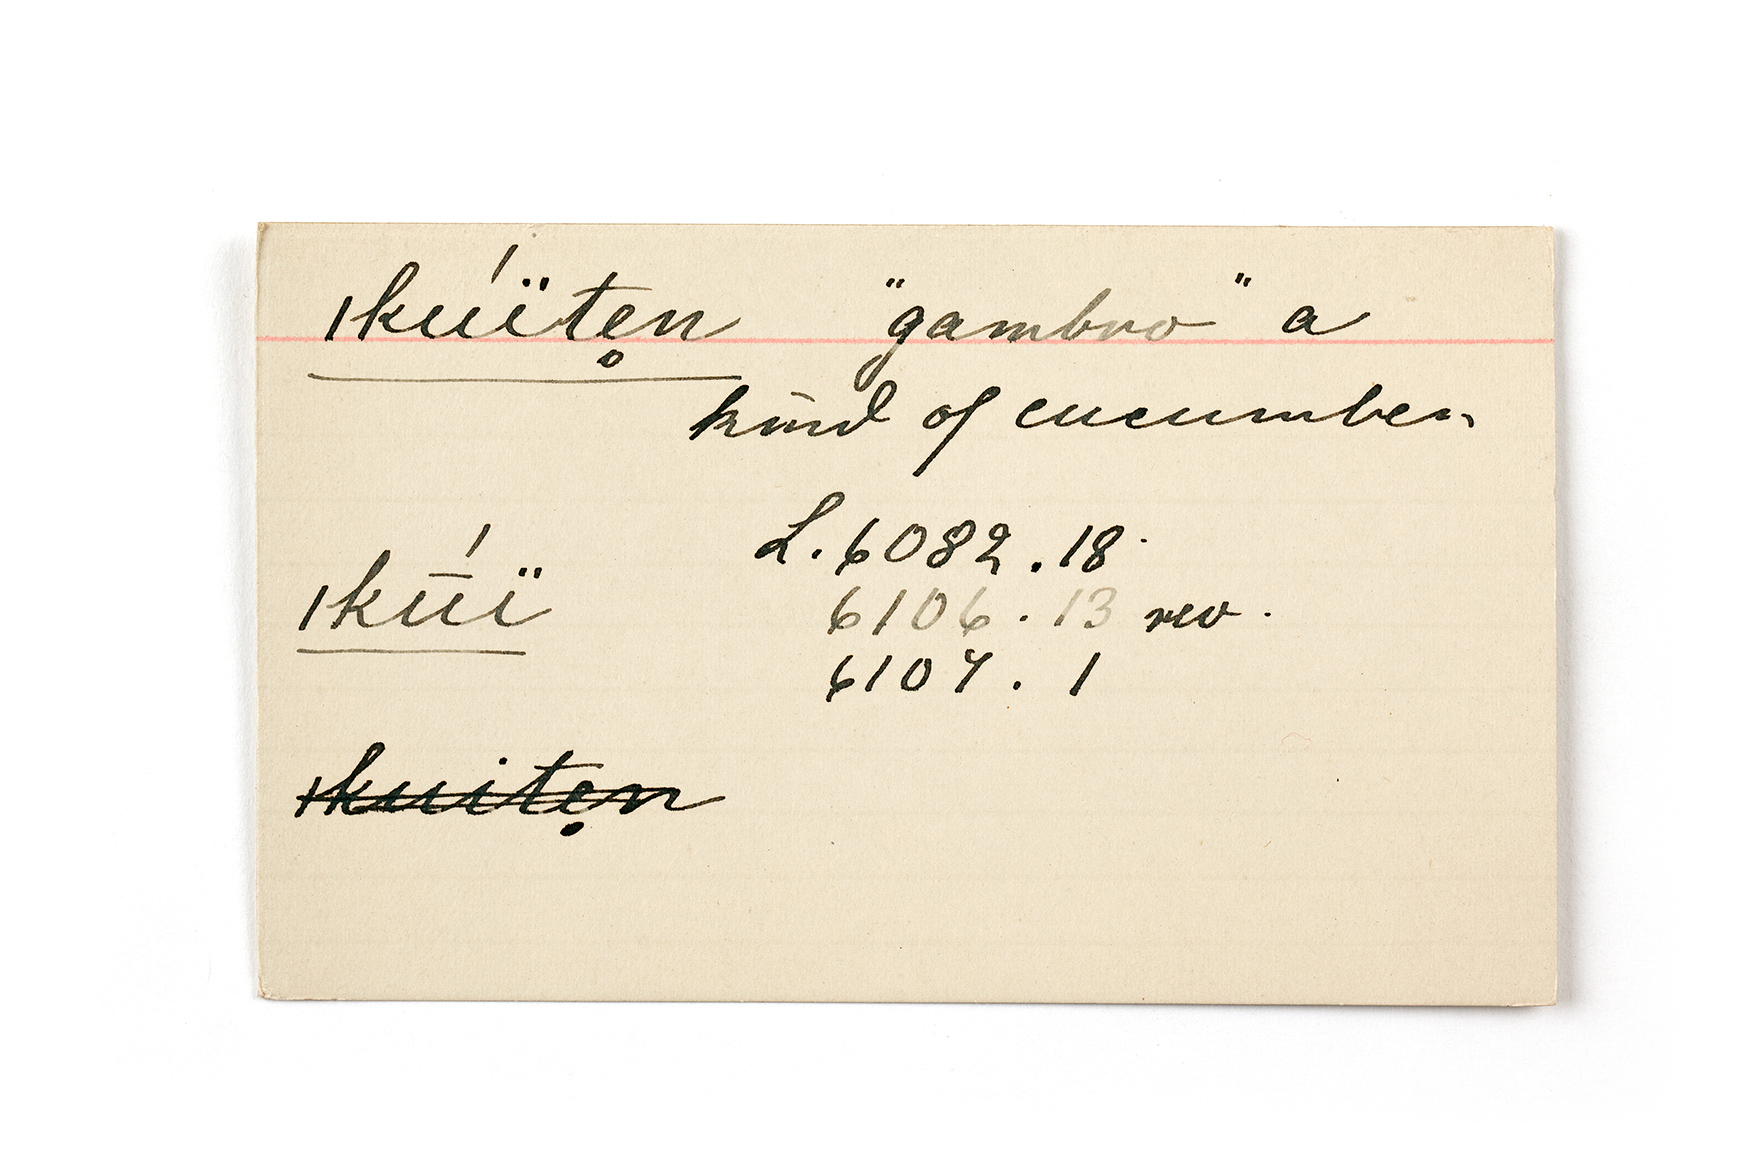 |kúïte̥n "gambro" a
kind of cucumber
L. 6082.18.
|kū́ï 6106.13 rev.
6107.1
|kuitẹn